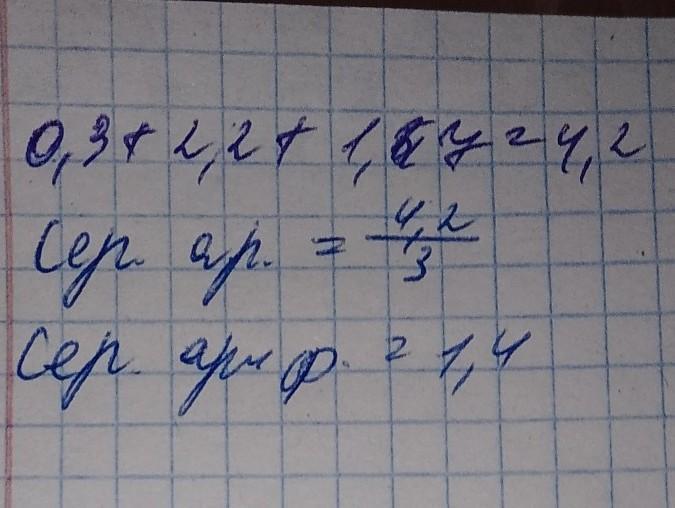 0,3 + 2,2 + 1,7 = 4,2
Сер. ар. = 4,2/3
Сер. ариф. = 1,4